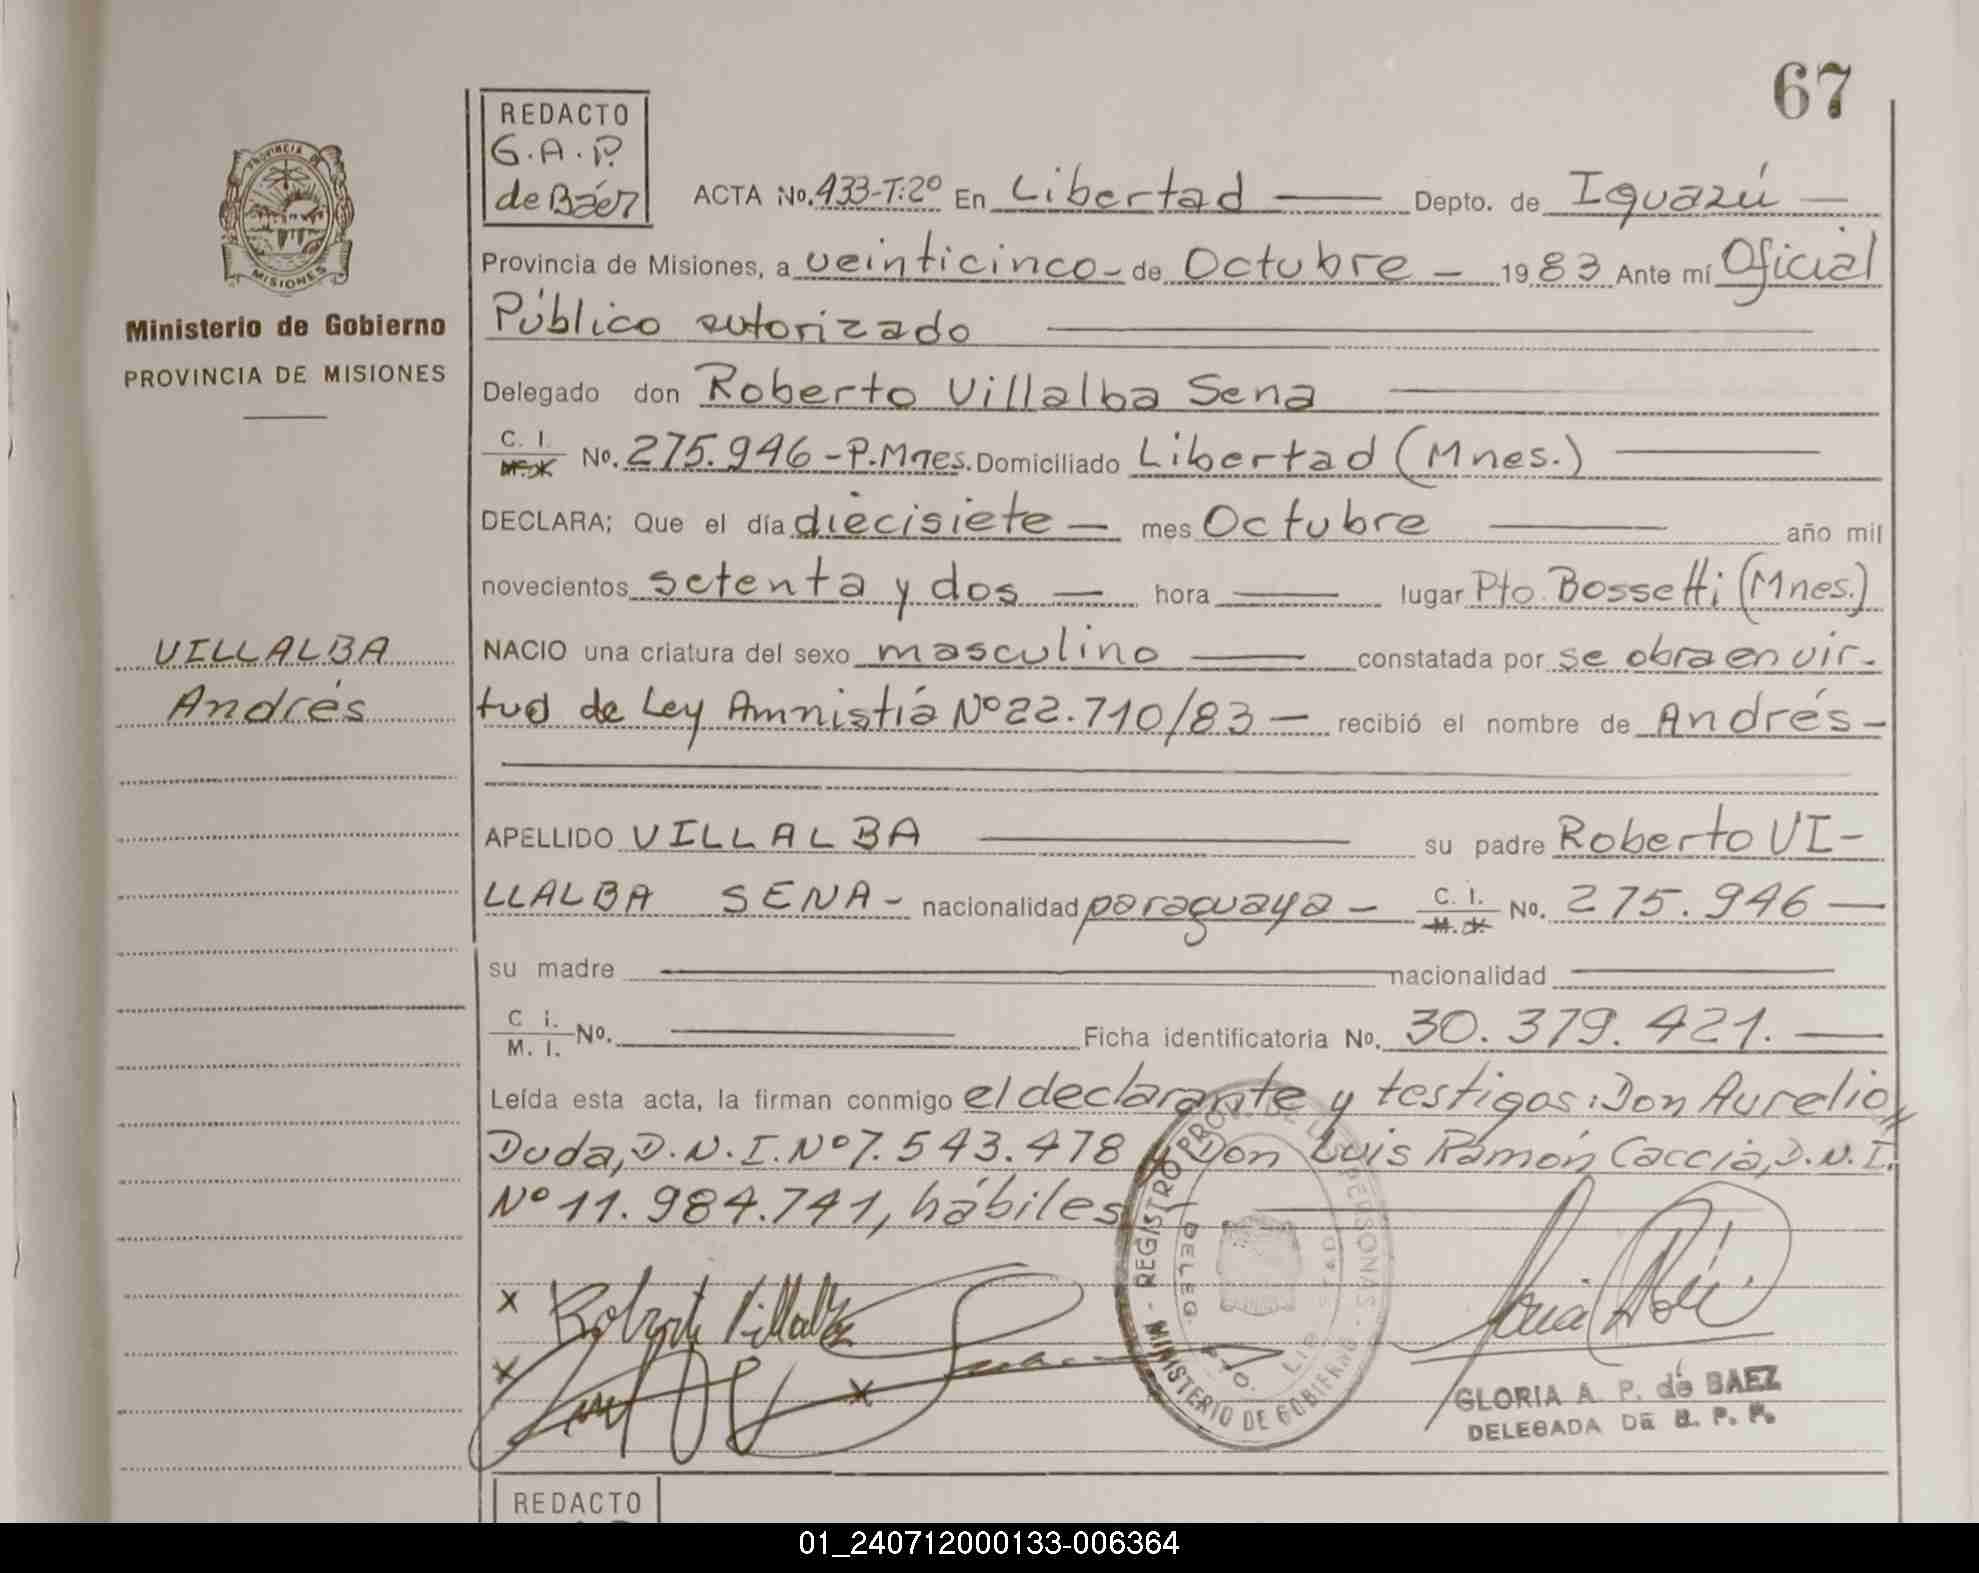 67
REDACTO
G.A.P.
de Báez
PROVINCIA DE
MISIONES
Ministerio de Gobierno
PROVINCIA DE MISIONES
VILLALBA
Andrés
ACTA No. 433-T:2º En Libertad Depto. de Iguazú
Provincia de Misiones, a veinticinco de Octubre 1983 Ante mí Oficial
Público autorizado
Delegado don Roberto Villalba Sena
C. I. No. 275.946-P.Mnes. Domiciliado Libertad (Mnes.)
DECLARA; Que el día diecisiete mes Octubre año mil
novecientos setenta y dos hora lugar Pto. Bossetti (Mnes.)
NACIO una criatura del sexo masculino constatada por se obra en vir-
tud de Ley Amnistiá Nº 22.710/83 recibió el nombre de Andrés
APELLIDO VILLALBA su padre Roberto VI-
LLALBA SENA nacionalidad paraguaya C. I. No. 275.946
su madre nacionalidad
C i.
M. I. No. Ficha identificatoria No. 30.379.421.
Leída esta acta, la firman conmigo el declarante y testigos: Don Aurelio
Duda, D.N.I. Nº 7.543.478 y Don Luis Ramón Caccia, D.N.I.
Nº 11.984.741, hábiles
x Roberto Villalba
x
x
REGISTRO PROV. DE LAS PERSONAS - MINISTERIO DE GOBIERNO -
DELEG. PTO. LIB
GLORIA A. P. de BAEZ
DELEGADA DE R. P. P.
REDACTO
01_240712000133-006364